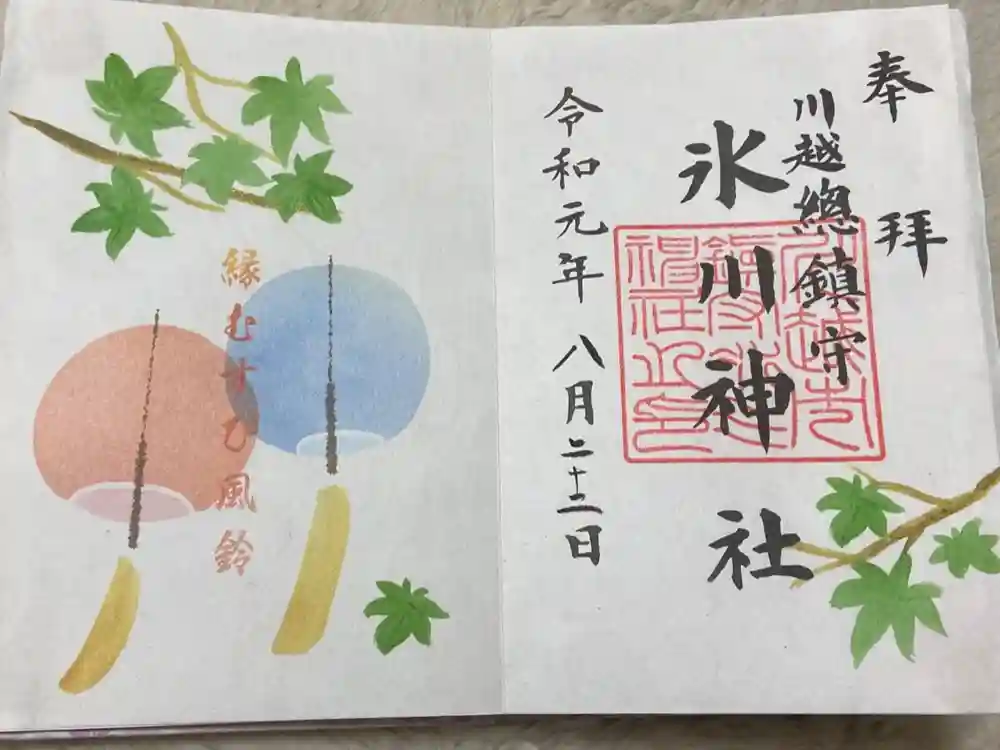 奉拝
川越總鎮守
氷川神社
令和元年八月二十二日
縁むすび風鈴